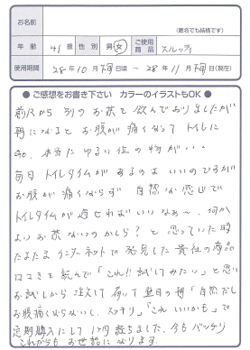 お名前
(匿名でも結構です)
年齢 41歳 性別 男・女 ご使用商品 スルッティ
使用期間 28年10月下旬頃 ～ 28年11月下旬(現在)
● ご感想をお書き下さい カラーのイラストもOK ●
前々から 別の お茶を 飲んでおりましたが
朝になると お腹が 痛くなって トイレに
毎日 トイレタイムが あるのは いいのですが
お腹が 痛くならず 自然な 感じで
トイレタイムが 過せれば いいなぁ～、何か
よいお茶 ないのかしら? と 思っていた時
たまたま インターネットで 発見した 貴社の商品
口コミを 読んで「これ!!試してみたい」と思い
お試しから 注文して 届いて 翌日の朝「自然だし
お腹痛くならないし、スッキリ」「これ いいかも」で
定期購入にして 1ヶ月 経ちました、今もバッチリ
これからも お世話になります。